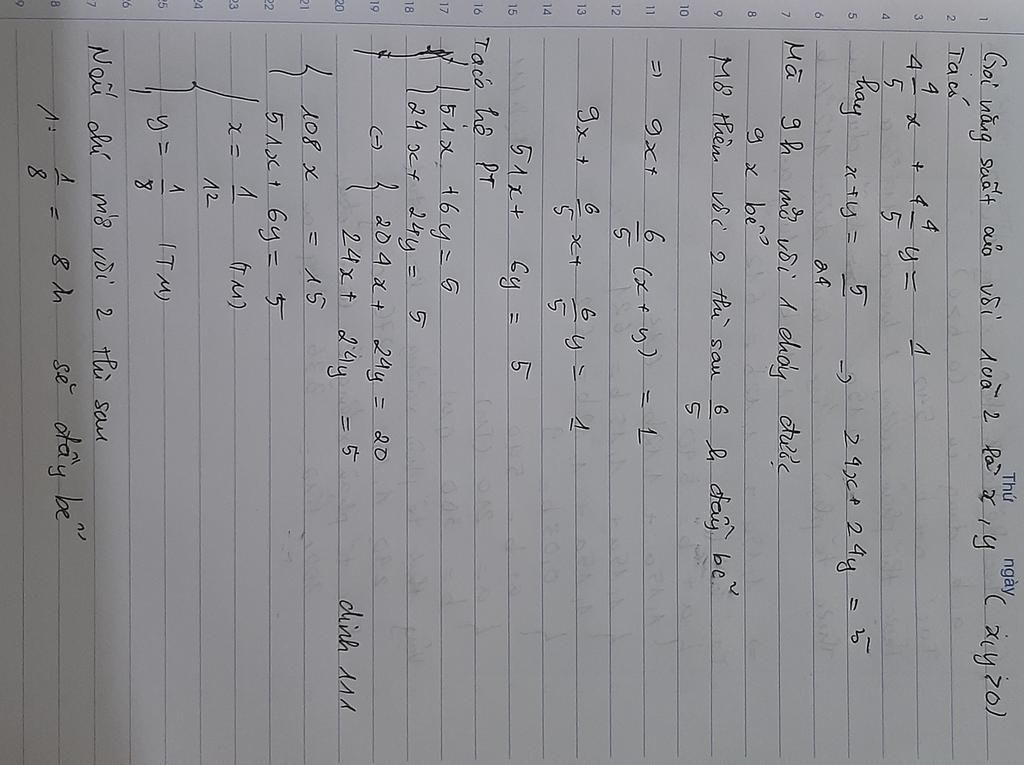 Thứ ngày
Gọi năng suất của vòi 1 và 2 là x, y ( x, y > 0)
Ta có
4 4/5 x + 4 4/5 y = 1
hay x+y = 5/24 → 24x + 24y = 5
Mà 9h mở vòi 1 chảy được
9 x bể
Mở thêm vòi 2 thì sau 6/5 h đầy bể
=> 9x + 6/5 (x + y) = 1
9x + 6/5 x + 6/5 y = 1
51x + 6y = 5
Ta có hệ PT
{ 51x + 6y = 5
{ 24x + 24y = 5
(-) { 204x + 24y = 20
{ 24x + 24y = 5
dinh 111
{ 108x = 15
{ 51x + 6y = 5
{ x = 1/12 (TM)
{ y = 1/8 (TM)
Nếu chỉ mở vòi 2 thì sau
1: 1/8 = 8 h sẽ đầy bể